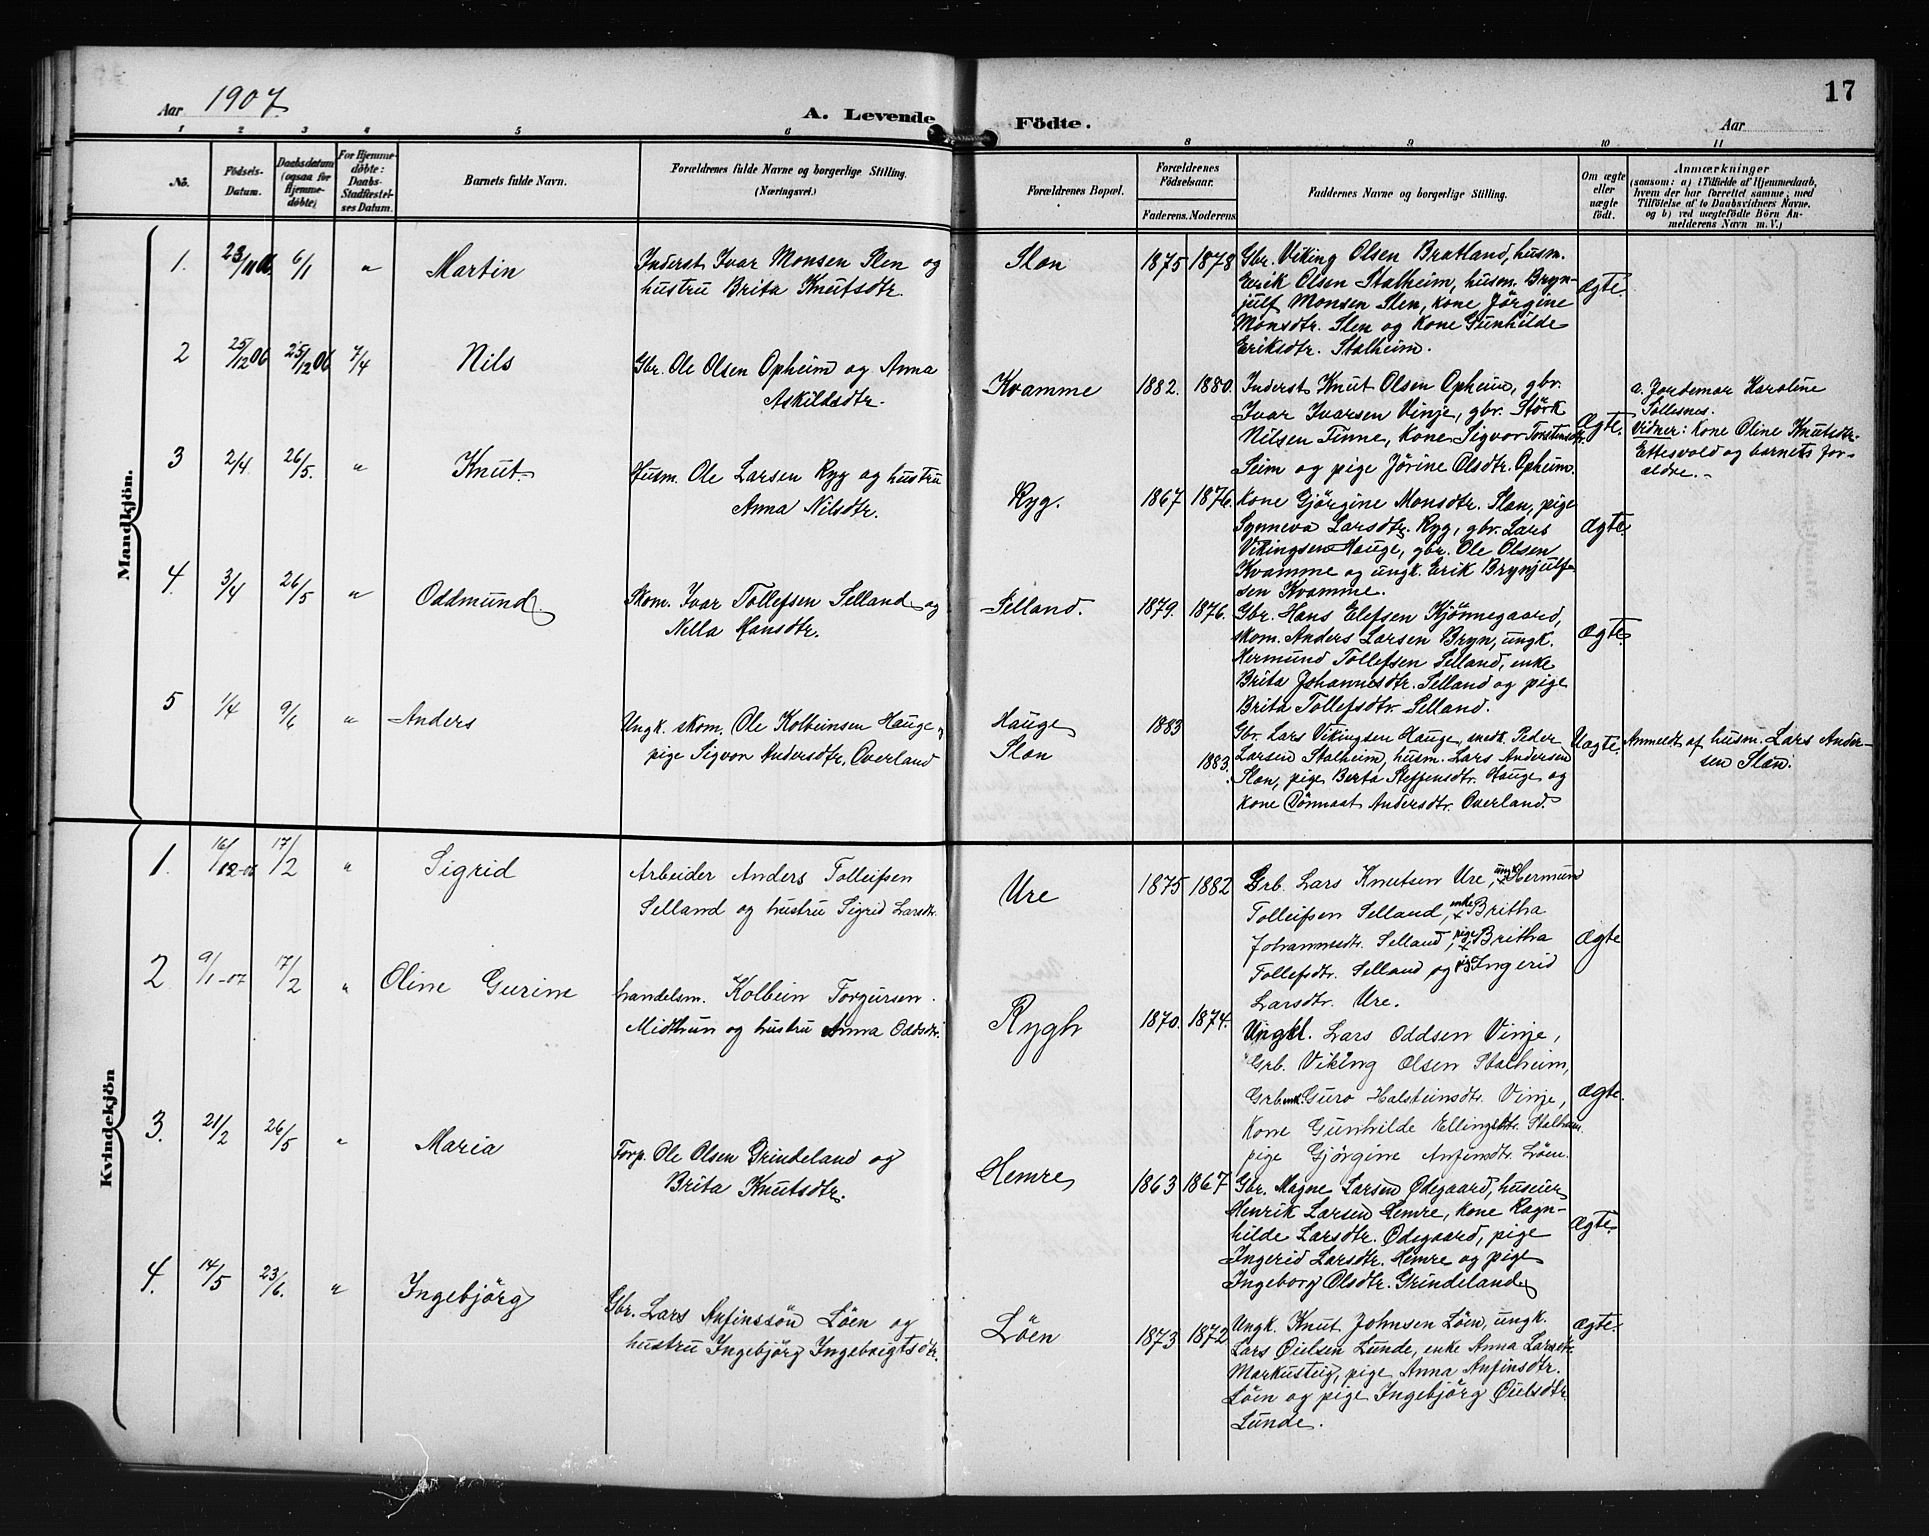 Aar 1907.
A. Levende Födte.
17
Aar
1 2 3 4 5 6 8 9 10 11
No.
Födsels-Datum.
Daabsdatum (ogsaa for Hjemme-døbte)
For Hjemme-døbte: Daabs-Stadfæstel-ses Datum.
Barnets fulde Navn.
Forældrenes fulde Navne og borgerlige Stilling. (Næringsvei.)
Forældrenes Bopæl.
Forældrenes Födselsaar.
Faderens. Moderens.
Faddernes Navne og borgerlige Stilling.
Om ægte eller uægte födt.
Anmærkninger
(saasom: a) i Tilfælde af Hjemmedaab,
hvem der har forrettet samme, med
Tilföielse af to Daabsvidners Navne.
og b) ved uægtefödte Börn An-
melderens Navn m. V.)
Mandkjön.
1. 23/11 06 6/1 " Martin
Inderst Ivar Monsen Slen og
hustru Brita Knutsdtr.
Slon 1875 1878
Gbr. Viking Olsen Bratland, husm.
Erik Olsen Stalheim, husm. Bryn-
julf Monsen Slen, kone Jörgine
Monsdtr. Slen og kone Gunhilde
Eriksdtr. Stalheim.
Ægte.
2 25/12 06 25/12 06 7/4 Nils
Gbr. Ole Olsen Opheim og Anna
Askildsdtr.
Kvamme 1882. 1880.
Inderst Knut Olsen Opheim, gbr.
Ivar Ivarsen Vinje, gbr. Störk
Nilsen Finne, kone Sigvor Torstensdtr.
Seim og pige Jörine Olsdtr. Opheim.
Ægte.
a. Jordemor Karoline
Tollesnes.
Vidner: kone Oline Knutsdtr.
Ettesvold og barnets for-
ældre.-
3 2/4. 26/5. " Knut.
Husm. Ole Larsen Ryg og hustru
Anna Nilsdtr.
Ryg. 1867 1876.
Kone Gjörgine Monsdtr. Slon, pige
Synneva Larsdtr. Ryg, gbr. Lars
Vikingsen Hauge, gbr. Ole Olsen
Kvamme og ungk. Erik Brynjulf-
sen Kvamme.
Ægte.
4. 3/4 26/5 " Oddmund.
Skom. Ivar Tollefsen Selland og
Nilla Hansdtr.
Selland. 1879. 1876.
Gbr. Hans Elefsen Kjönnegaard,
skom. Anders Larsen Bryn, ungk.
Hermund Tollefsen Selland, enke
Brita Johannesdtr. Selland og pige
Brita Tollefsdtr. Selland.
Ægte.
5 1/4 9/6 " Anders
Ungk. skom. Ole Kolbeinsen Hauge og
pige Sigvor Andersdtr. Overland
Hauge
Slon
1883
1883.
Gbr. Lars Vikingsen Hauge, snedk. Peder
Larsen Stalheim, husm. Lars Andersen
Slon, pige Berta Steffensdtr. Hauge og
kone Dönnaat Andersdtr. Overland.
Uægte.
Anmeldt af husm. Lars Ander-
sen Slon.
Kvindekjön
1. 16/12-06 17/2 " Sigrid
Arbeider Anders Tolleifsen
Selland og hustru Sigrid Larsdtr.
Ure 1875 1882
Grb. Lars Knutsen Ure, ungk. Hermund
Tolleifsen Selland, enke Britha
Johannesdtr. Selland, pige Britha
Tollefsdtr. Selland og pige Ingerid
Larsdtr. Ure.
Ægte
2 9/1-07 17/2 " Oline Gurine
handelsm. Kolbein Torgursen
Midthun og hustru Anna Oddsdtr.
Rygh 1870. 1874.
Ungkl. Lars Oddsen Vinje,
Grb. Viking Olsen Stalheim,
Grbenk. Guro Halsteinsdtr. Vinje,
Kone Gunhilde Ellingsdtr. Stalheim.
pige Gjörgine Anfinsdtr. Löen.
Ægte.
3. 21/2 26/5 " Maria
Forp. Ole Olsen Grindeland og
Brita Knutsdtr.
Hemre 1863 1867
Gbr. Magne Larsen Ödegaard, huseier
Henrik Larsen Hemre, kone Ragn-
hilde Larsdtr. Ödegaard, pige
Ingerid Larsdtr. Hemre og pige
Ingeborg Olsdtr. Grindeland
Ægte.
4. 14/5 23/6. " Ingebjörg
Gbr. Lars Anfinssön Löen og
hustru Ingebjörg Ingebrigtsdtr.
Löen 1873 1872
Ungk. Knut Johnsen Löen, ungk.
Lars Öielsen Lunde, enke Anna Larsdtr.
Markusteig, pige Anna Anfinsdtr.
Löen og pige Ingebjörg Öielsdtr.
Lunde.
Ægte.